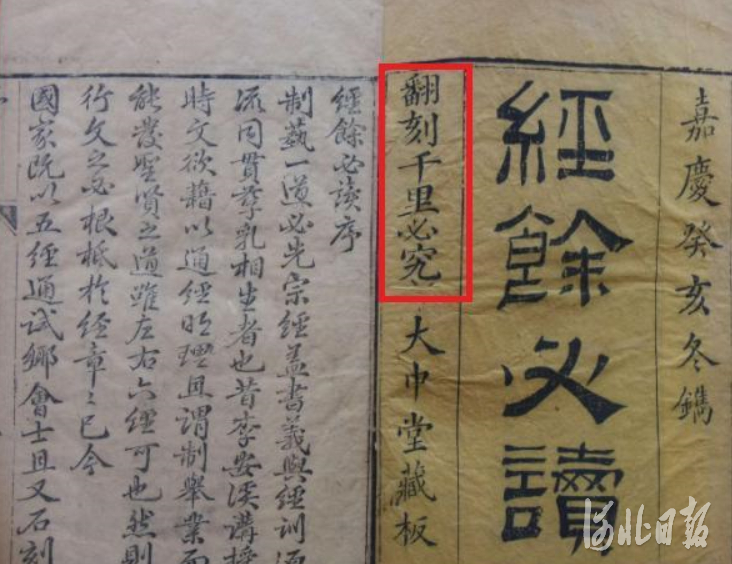 嘉慶癸亥冬鐫
經餘必讀
翻刻千里必究 大巾堂藏板
經餘必讀序
制藝一道必先宗經蓋書義與經訓源
流同貫孳乳相生者也昔李安溪講授
時文欲藉以通經明理且謂制舉業而
能發聖賢之道雖左右六經可也然則
行文之必根柢於經章章已今
國家既以五經通試鄉會士且又石刻
河北日報